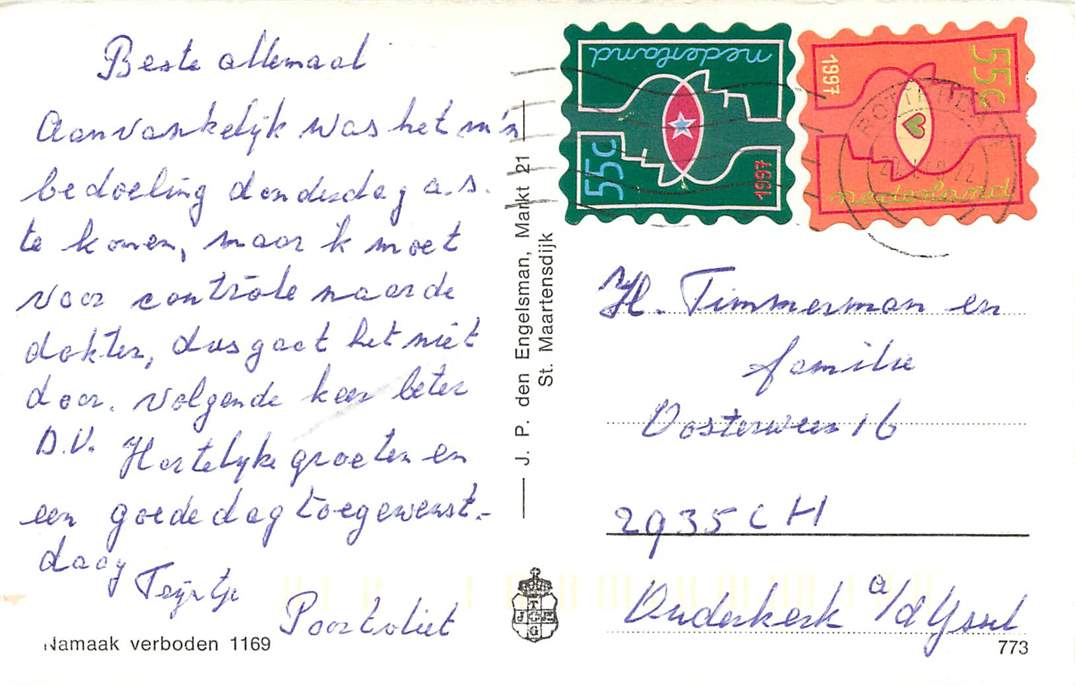 Beste allemaal
Aanvankelijk was het m'n
bedoeling donderdag a.s.
te komen, maar k moet
voor controle naar de
dokter, dus gaat het niet
door. Volgende keer beter
D.V. Hartelijke groeten en
een goede dag toegewenst.-
daag
Poortvliet
Namaak verboden 1169
J. P. den Engelsman, Markt 21
St. Maartensdijk
nederland
55c
1997
1997
55c
nederland
ROTTERDAM
H. Timmerman en
familie
Oosterween 16
2935 CH
Ouderkerk a/d Yssel
773